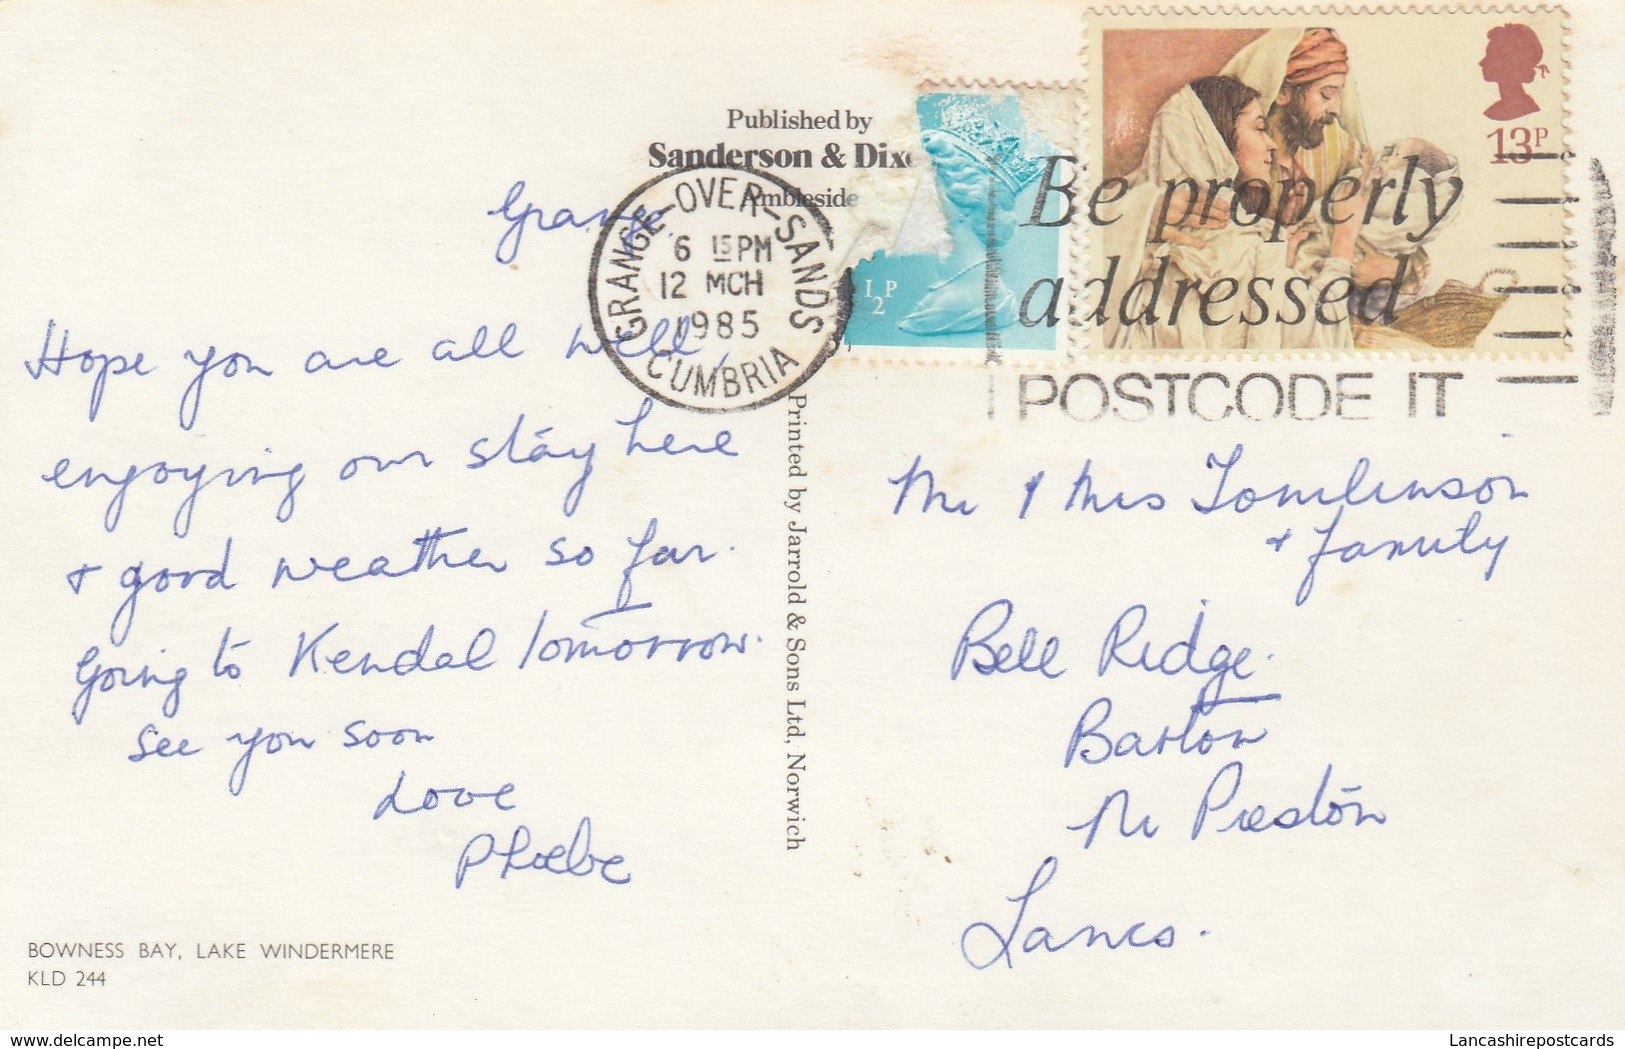 Published by
Sanderson & Dixo
Ambleside
Grange.
GRANGE-OVER-SANDS
6 15 PM
12 MCH
1985
CUMBRIA
½P
13P
Be properly
addressed
POSTCODE IT
Hope you are all well,
enjoying our stay here
+ good weather so far.
Going to Kendal tomorrow.
See you soon
Love
Phoebe
Printed by Jarrold & Sons Ltd, Norwich
Mr & Mrs Tomlinson
+ family
Bell Ridge.
Barton
Nr Preston
Lancs.
BOWNESS BAY, LAKE WINDERMERE
KLD 244
www.delcampe.net
Lancashirepostcards